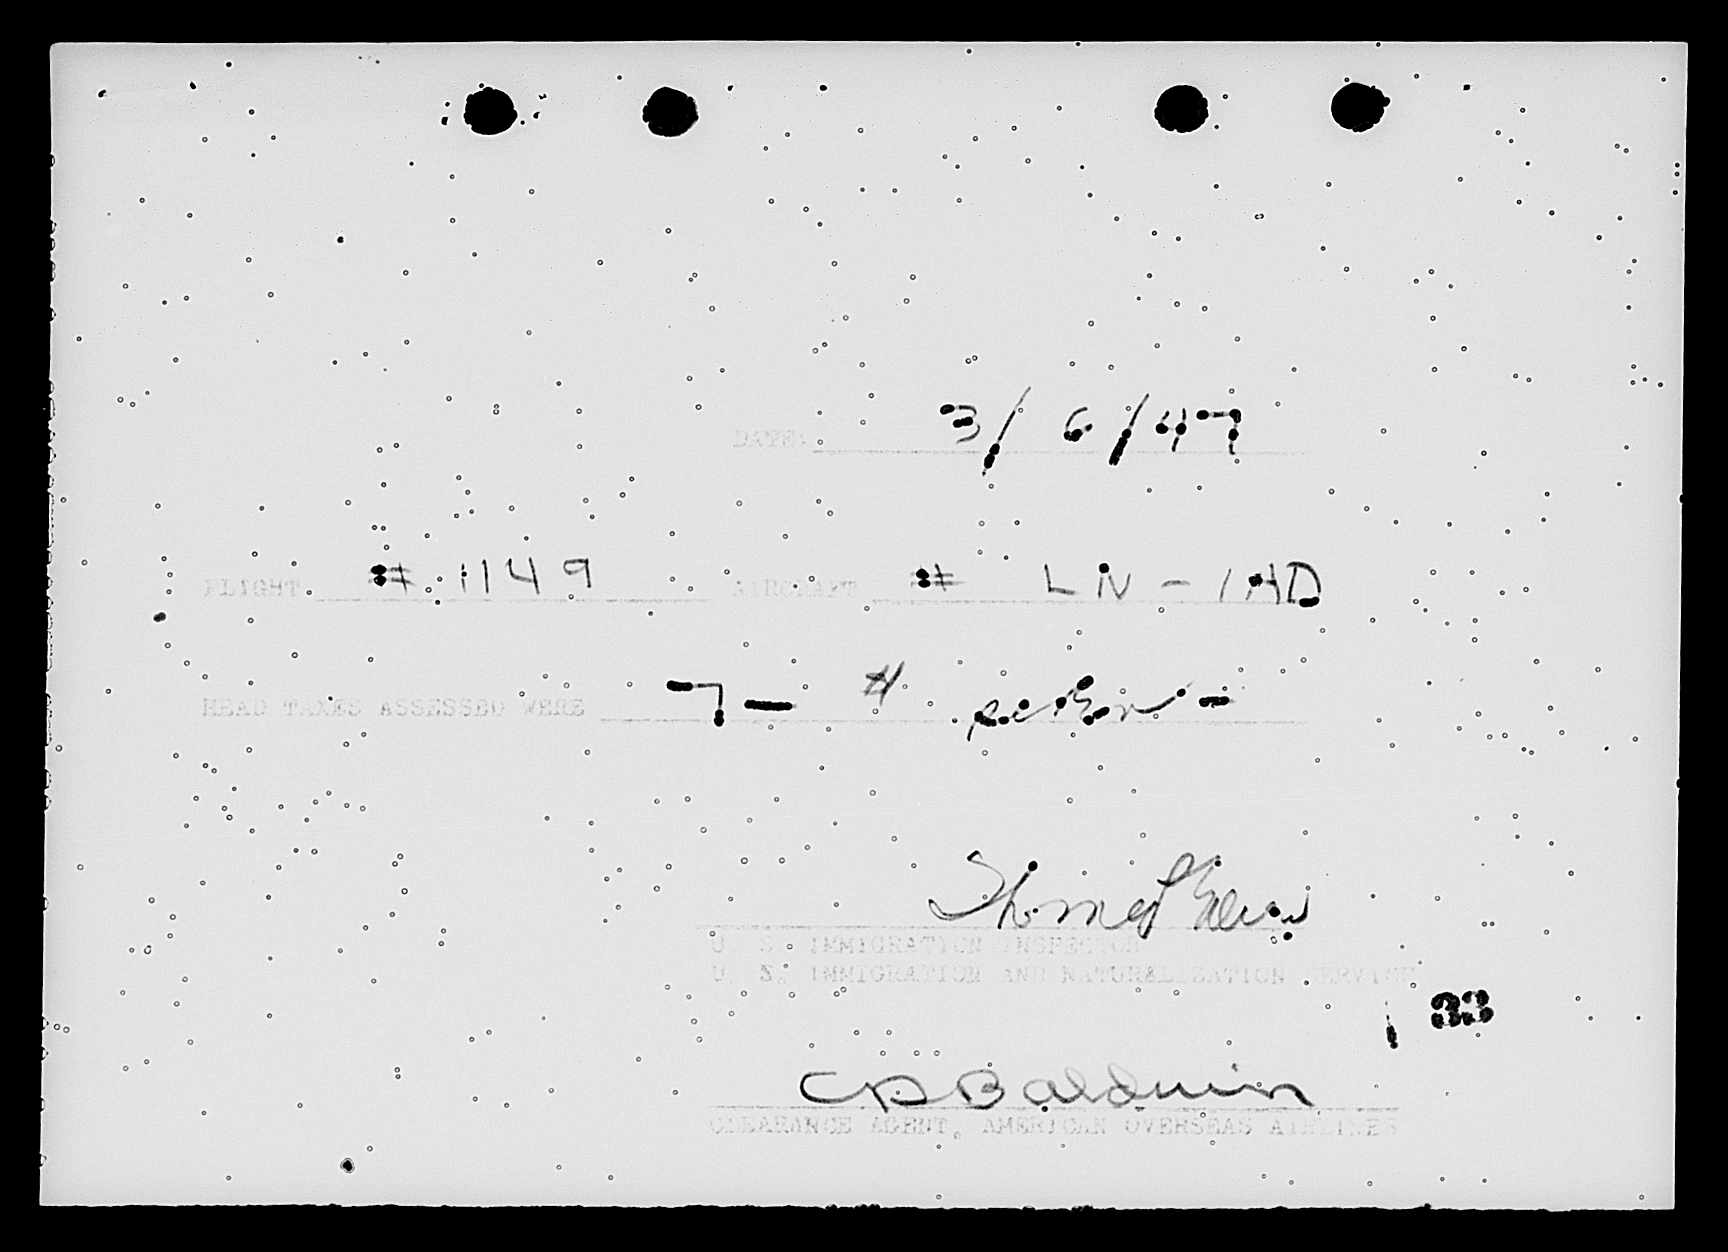 DATE: 3/6/47
FLIGHT # 1149 AIRCRAFT # LN-IAD
HEAD TAXES ASSESSED WERE 7 - #
U. S. IMMIGRATION INSPECTOR
U. S. IMMIGRATION AND NATURALIZATION SERVICE
33
CD Baldwin
CLEARANCE AGENT, AMERICAN OVERSEAS AIRLINES